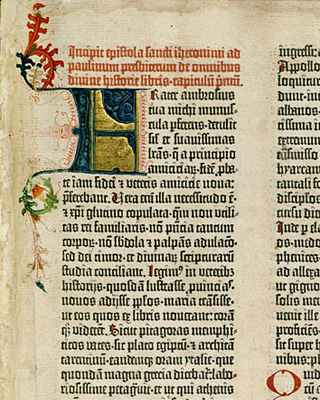 Incipit epistola sancti iheronimi ad
paulinum presbiterum de omnibus
divine historie libris. capitulū p̄mū.
Frater ambrosius
tua michi munus-
cula p̱ferens. detulit
sil' et suavissimas
lr̄as. q̄ a principio
amiciciaꝝ. fidē p̱ba-
te iam fidei & veteris amicicie nova:
p̱ferebant. Vera eni illa necessitudo ē.
& xp̄i glutino copulata. qm̄ non utili-
tas rei familiaris. nō p̄ncia tantum
corpoꝝ. nō sb̄dola & palpās adulacō.
sed dei timor. et divinaꝝ scripturarum
studia conciliant. Legimꝰ in veteribꝫ
historijs. quosdā lustrasse p̱vīcias.
novos adiisse pp̄los. maria trāsisse.
ut eos quos ex libris noverant: corā
qꝫ viderēt. Sicut pitagoras memphi-
ticos vates. sic plato egiptū. & architā
tarentinū. eandemqꝫ oram ytalie. que
quondā magna grecia dicebat̄: labo-
riosissime peragravit. et ut qui athenis
ingressi. a
Apollo
loquitur
albanos
tissima
extremum
trāsmisso
hyarcam
tantali fo
discipulos
cursu die
Inde p̱ ela
os. medo
phenices
ad alexa
ut gigno
solis me
venit ille
proficiēs
nibus: pl